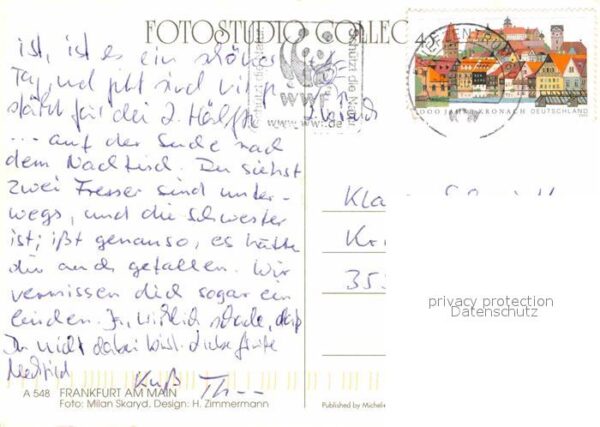 FOTOSTUDIO COLLEC
ist, ist es ein schöner
Tag, und jetzt sind wir
stärkt für die 2. Hälfte
... auf der Suche nach
dem Nachtisch. Du siehst
zwei Fresser sind unter-
wegs, und die Schwester
ist; ißt genauso, es hätte
dir auch gefallen. Wir
vermissen dich sogar ein
. Ja, wirklich schade, daß
Du nicht dabei bist. Liebe Grüße
Kuß Th
Schützt die Natur
WWF
www.wwf.de
Schützt die Natur
1000 JAHRE KRONACH DEUTSCHLAND
Kla
Kr
35
privacy protection
Datenschutz
A 548 FRANKFURT AM MAIN
Foto: Milan Skaryd, Design: H. Zimmermann
Published by Michel